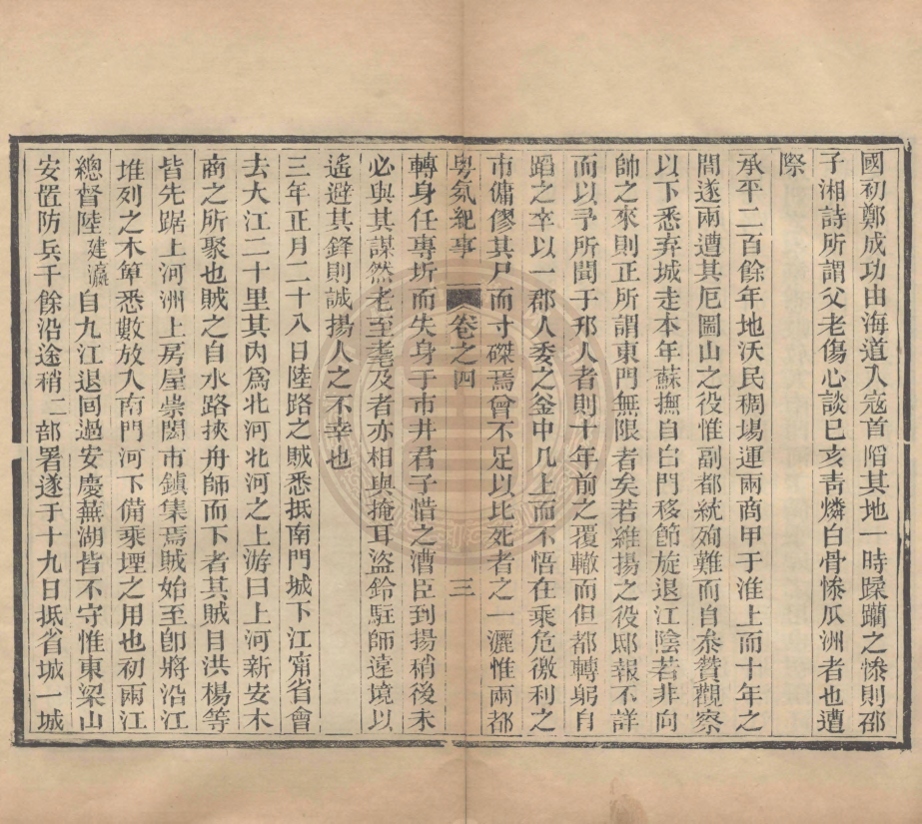 國初鄭成功由海道入寇首陷其地一時躁躪之慘則邵
子湘詩所謂父老傷心談巳亥青燐白骨慘瓜洲者也遭
際
承平二百餘年地沃民稠場運兩商甲于淮上而十年之
間遂兩遭其厄圖山之役惟副都統殉難而自叅贊觀察
以下悉弃城走本年蘇撫自白門移節旋退江陰若非向
帥之來則正所謂東門無限者矣若維揚之役邸報不詳
而以予所聞于邦人者則十年前之覆轍而但都轉躬自
蹈之幸以一郡人委之釜中几上而不悟在乘危徼利之
市傭僇其尸而寸磔焉曾不足以比死者之一灑惟兩都
粤氛紀事 卷之四 三
轉身任專圻而失身于市井君子惜之漕臣到揚稍後未
必與其謀然老至耄及者亦相與掩耳盜鈴駐師遠境以
遙避其鋒則誠揚人之不幸也
三年正月二十八日陸路之賊悉抵南門城下江甯省會
去大江二十里其内爲北河北河之上游曰上河新安木
商之所聚也賊之自水路挾舟師而下者其賊目洪楊等
皆先踞上河洲上房屋崇閎市鎮集焉賊始至卽將沿江
堆列之木簰悉數放入南門河下備乘堙之用也初兩江
總督陸建瀛自九江退回過安慶蕪湖皆不守惟東梁山
安置防兵千餘沿途稍二部署遂于十九日抵省城一城